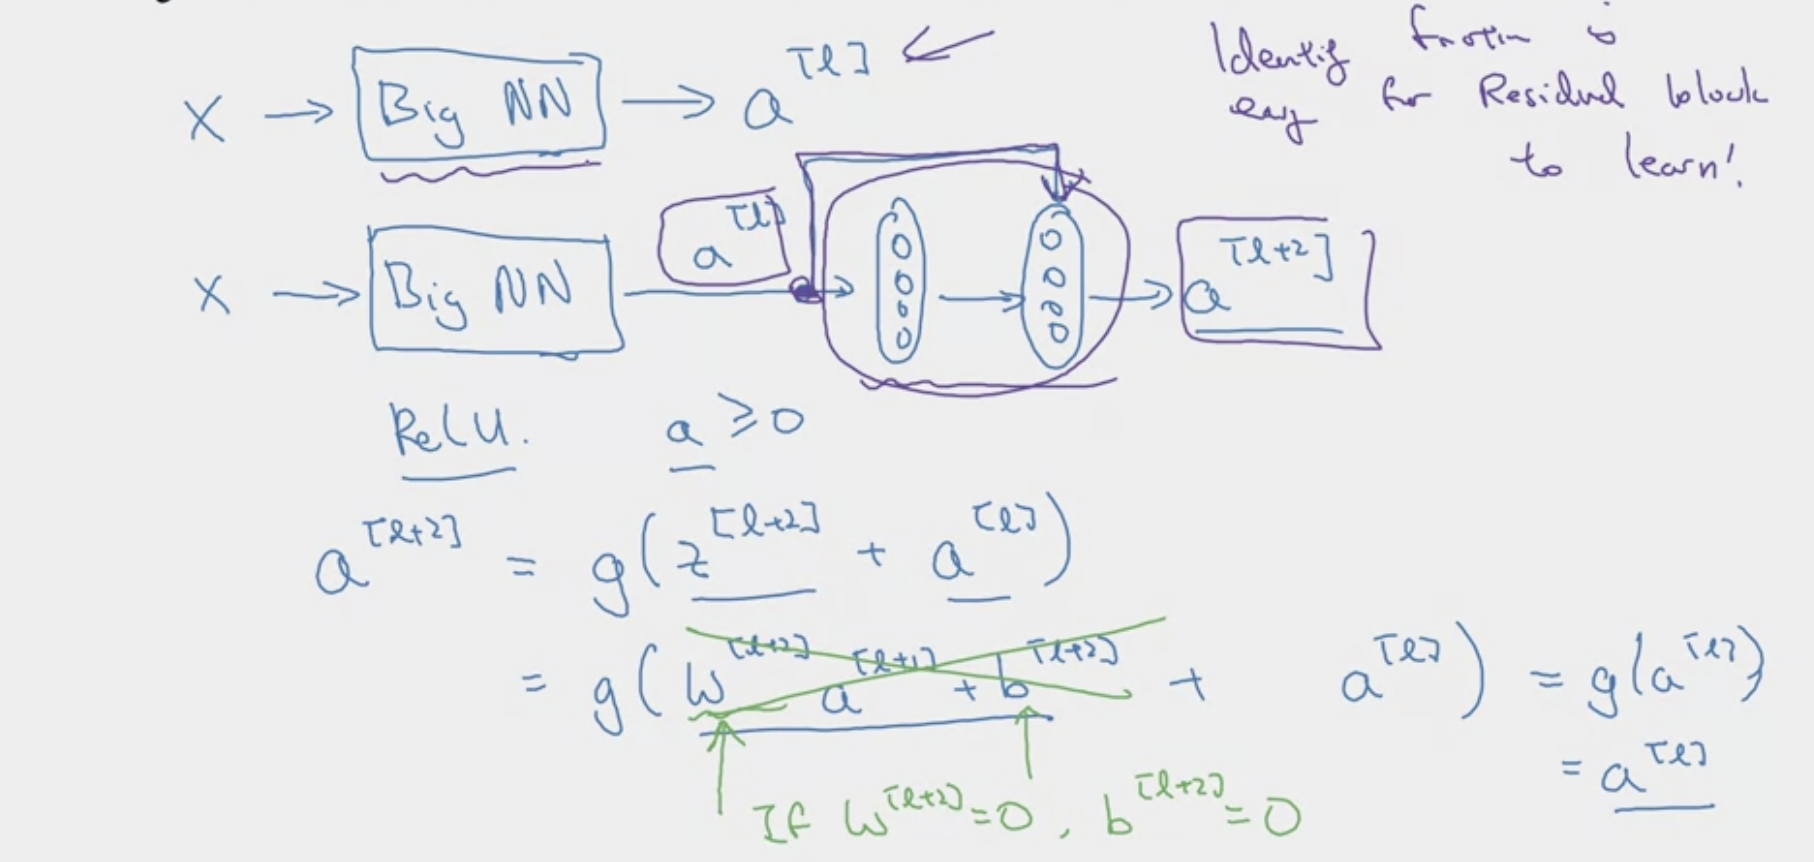 X → Big NN → a^[l]
Identity function is
easy for Residual block
to learn!
X → Big NN → a^[l] → a^[l+2]
ReLU. a ≥ 0
a^[l+2] = g(z^[l+2] + a^[l])
= g(W^[l+2] a^[l+1] + b^[l+2] + a^[l]) = g(a^[l])
= a^[l]
If W^[l+2] = 0, b^[l+2] = 0